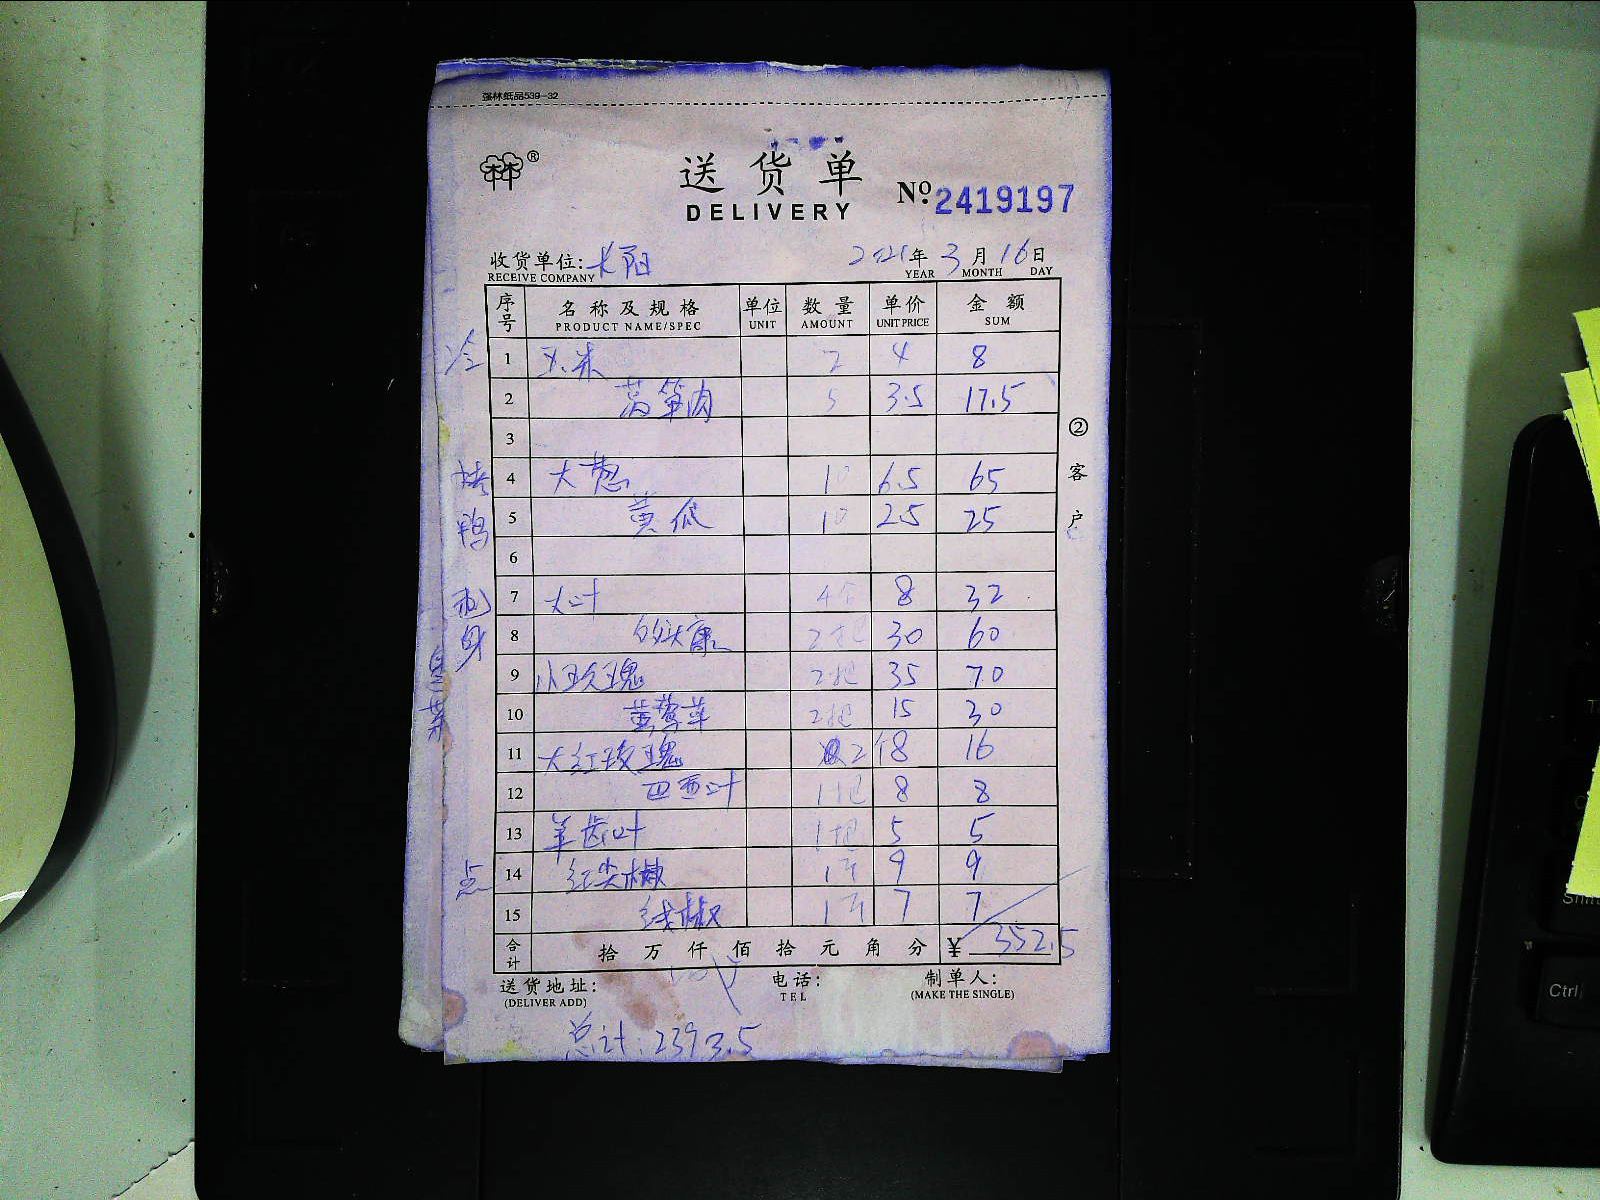 强林纸品539-32
林®
送货单
DELIVERY
№ 2419197
收货单位: 太阳 2021年3月16日
RECEIVE COMPANY YEAR MONTH DAY
序号 名称及规格 单位 数量 单价 金额
PRODUCT NAME/SPEC UNIT AMOUNT UNIT PRICE SUM
冷 1 玉米 2 4 8
2 莴笋肉 5 3.5 17.5
3
烤 4 大葱 10 6.5 65
鸭 5 黄瓜 10 2.5 25
6
刺 7 大叶 8 32
身 8 2把 30 60
9 小玫瑰 2把 35 70
10 黄莺草 2把 15 30
11 大红玫瑰 2个 8 16
12 巴西叶 1把 8 8
13 羊齿叶 1把 5 5
点 14 红尖椒 1斤 9 9
15 线椒 1斤 7 7
合计 拾 万 仟 佰 拾 元 角 分 ¥ 352.5
送货地址: 电话: 制单人:
(DELIVER ADD) TEL (MAKE THE SINGLE)
总计:2393.5
② 客户
Ctrl